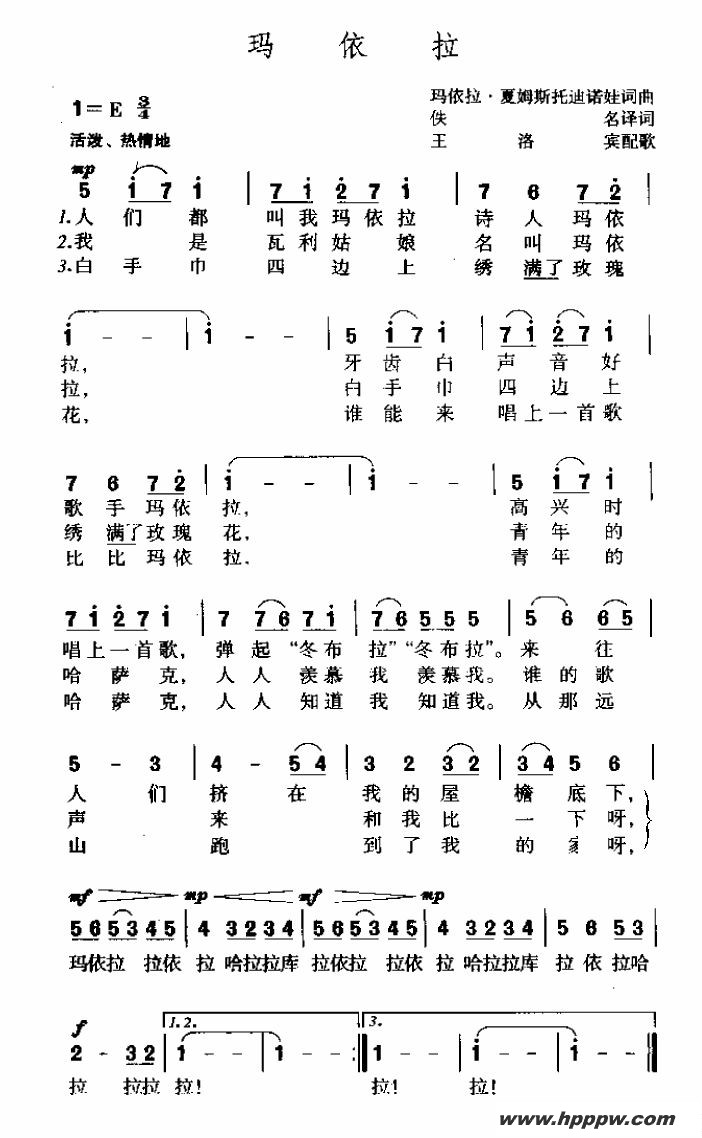 玛 依 拉
1=E 3/4
玛依拉·夏姆斯托迪诺娃词曲
佚 名译词
活泼、热情地
王 洛 宾配歌
mp
5 1 7 1 | 7 1 2 7 1 | 7 6 7 2 |
1.人 们 都 叫我玛依拉 诗 人 玛 依
2.我 是 瓦利姑 娘 名 叫 玛 依
3.白 手 巾 四 边 上 绣 满了玫瑰
1 - - | 1 - - | 5 1 7 1 | 7 1 2 7 1 |
拉, 牙 齿 白 声 音 好
拉, 白 手 巾 四 边 上
花, 谁 能 来 唱上一首歌
7 6 7 2 | 1 - - | 1 - - | 5 1 7 1 |
歌 手 玛 依 拉, 高 兴 时
绣 满了玫 瑰 花, 青 年 的
比 比 玛 依 拉, 青 年 的
7 1 2 7 1 | 7 7 6 7 1 | 7 6 5 5 5 | 5 6 6 5 |
唱上一首歌, 弹 起 “冬 布 拉”“冬布拉”。 来 往
哈 萨 克, 人 人 羡 慕 我 羡慕我。 谁 的 歌
哈 萨 克, 人 人 知 道 我 知道我。 从 那 远
5 - 3 | 4 - 5 4 | 3 2 3 2 | 3 4 5 6 |
人 们 挤 在 我 的 屋 檐 底 下,
声 来 和 我 比 一 下 呀,
山 跑 到 了 我 的 家 呀,
mf mp mf mp
5 6 5 3 4 5 | 4 3 2 3 4 | 5 6 5 3 4 5 | 4 3 2 3 4 | 5 6 5 3 |
玛依拉 拉依 拉 哈拉拉库 拉依拉 拉依 拉 哈拉拉库 拉 依 拉哈
f 1.2. 3.
2 - 3 2 | 1 - - | 1 - - :| 1 - - | 1 - - | 1 - - |
拉 拉拉 拉! 拉! 拉!
www.hpppw.com